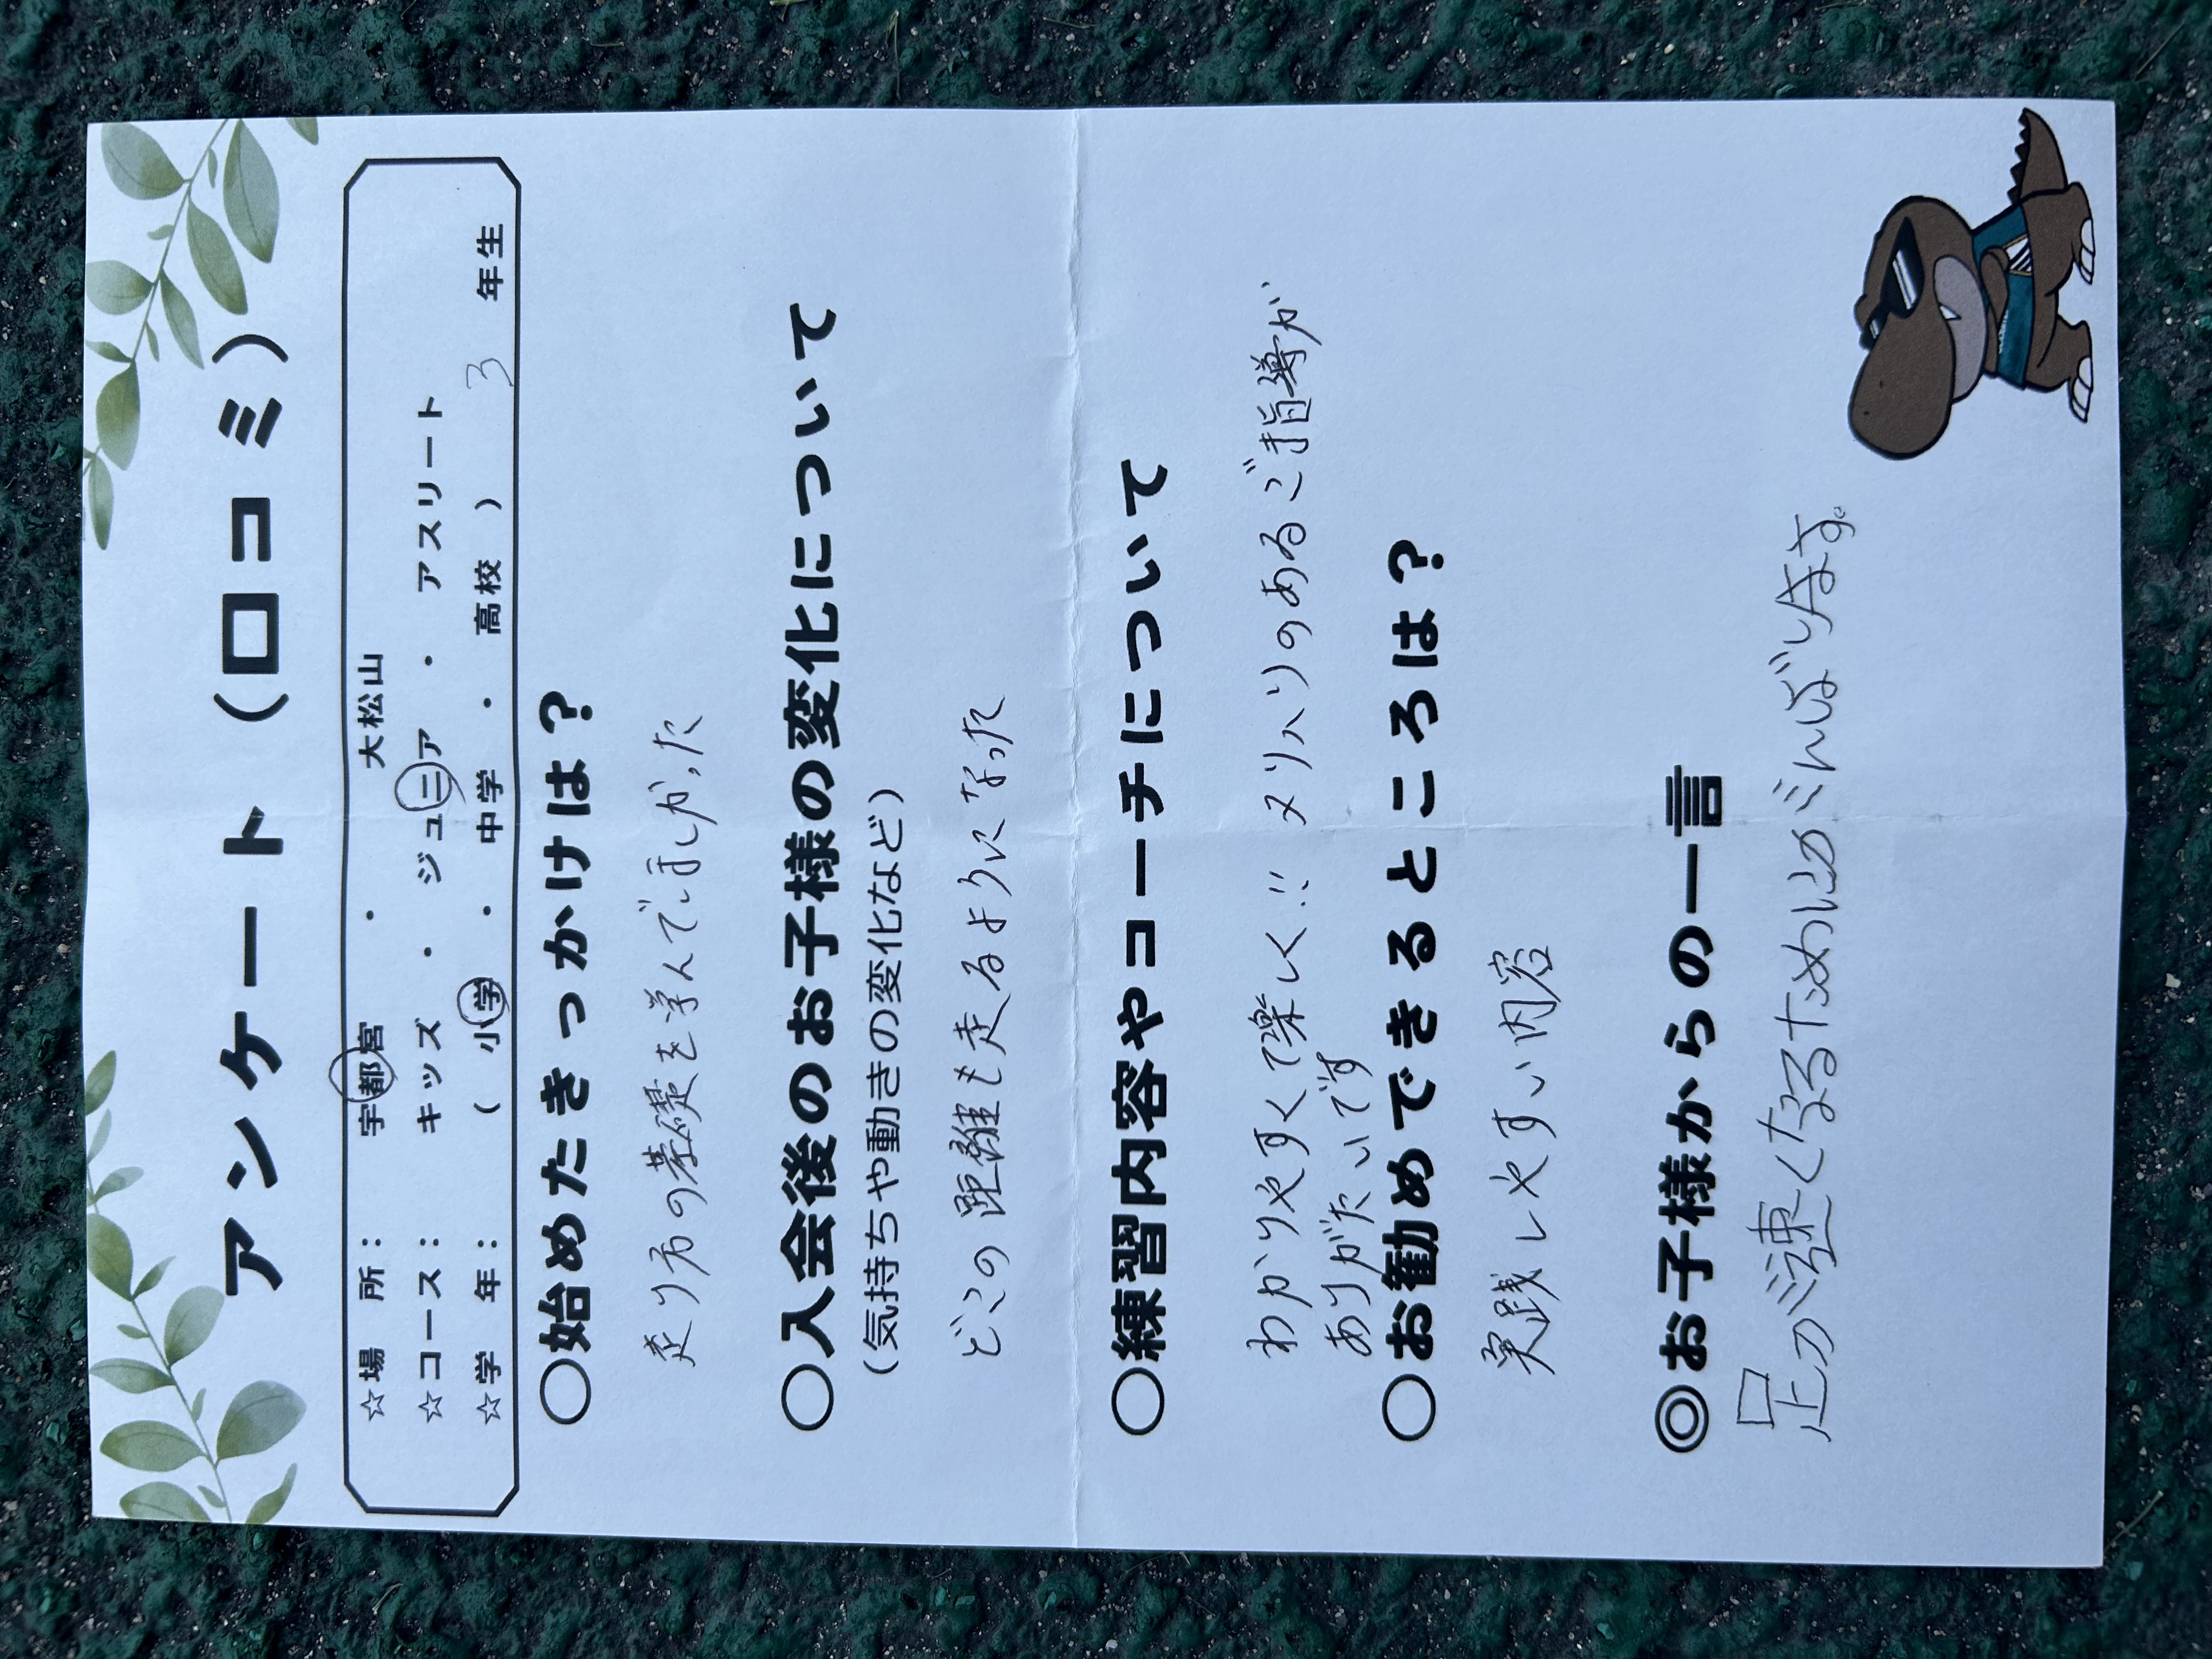 アンケート（口コミ）
☆場　所：　宇都宮　・　大松山
☆コース：　キッズ　・　ジュニア　・　アスリート
☆学　年：　（　小学　・　中学　・　高校　）　3　年生
○始めたきっかけは？
走り方の基礎を学んでほしかった
○入会後のお子様の変化について
（気持ちや動きの変化など）
どこの距離も走るようになった
○練習内容やコーチについて
わかりやすくて楽しく!! メリハリのあるご指導が
ありがたいです
○お勧めできるところは？
実践しやすい内容
◎お子様からの一言
足が速くなるためにがんばります。